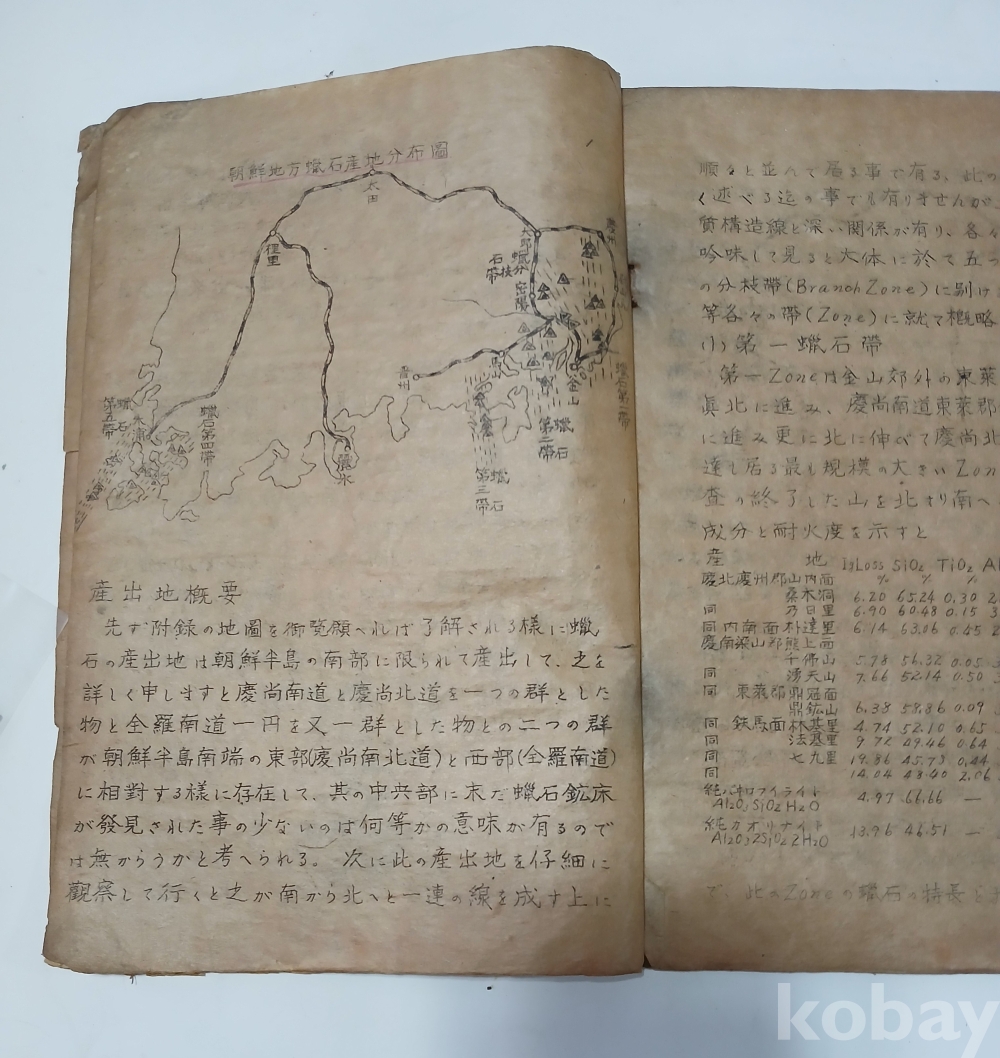 朝鮮地方蠟石産地分布圖
太田
裡里
大邱
慶州
蠟石分枝帶
密陽
馬山
晋州
釜山
蠟石第一帶
蠟石第二帶
蠟石第三帶
蠟石第四帶
蠟石第五帶
木浦
麗水
産出地概要
先ず附録の地圖を御覽願へれば了解される様に蠟
石の産出地は朝鮮半島の南部に限られて産出して、之を
詳しく申しますと慶尚南道と慶尚北道を一つの群とした
物と全羅南道一円を又一群とした物との二つの群
が朝鮮半島南端の東部(慶尚南北道)と西部(全羅南道)
に相對する様に存在して、其の中央部に末だ蠟石鉱床
が發見された事の少ないのは何等かの意味が有るので
は無からうかと考へられる。次に此の産出地を仔細に
觀察して行くと之が南から北へと一連の線を成す上に
順々と並んで居る事で有る、此の
く述べる迄の事でも有りませんが、
質構造線と深い関係が有り、各々
吟味して見ると大体に於て五つ
の分枝帶(Branch Zone)に別け
等各々の帶(Zone)に就て概略
(1)第一蠟石帶
第一Zoneは金山郊外の東萊
眞北に進み、慶尚南道東萊郡
に進み更に北に伸べて慶尚北
達し居る最も規模の大きいZon
査の終了した山を北より南へ
成分と耐火度を示すと
産 地 IgLoss SiO2 TiO2 Al
% % %
慶北慶州郡山内面
桑木洞 6.20 65.24 0.30 2
同 乃日里 6.90 60.48 0.15 3
同 内南面朴達里 6.14 63.06 0.45 2
慶南梁山郡熊上面
千佛山 5.78 56.32 0.05 3
同 湧天山 7.66 52.14 0.50 3
同 東萊郡鼎冠面
鼎鉱山 6.38 58.86 0.09 3
同 鉄馬面林基里 4.74 52.10 0.65
同 法基里 9.72 49.46 0.64
同 七九里 19.86 45.73 0.44
同 14.04 48.40 2.06
純パイロフイライト
Al2O3 SiO2 H2O 4.97 66.66 —
純カオリナイト
Al2O3 2SiO2 2H2O 13.96 46.51 —
で、此のZoneの蠟石の特長と
kobay